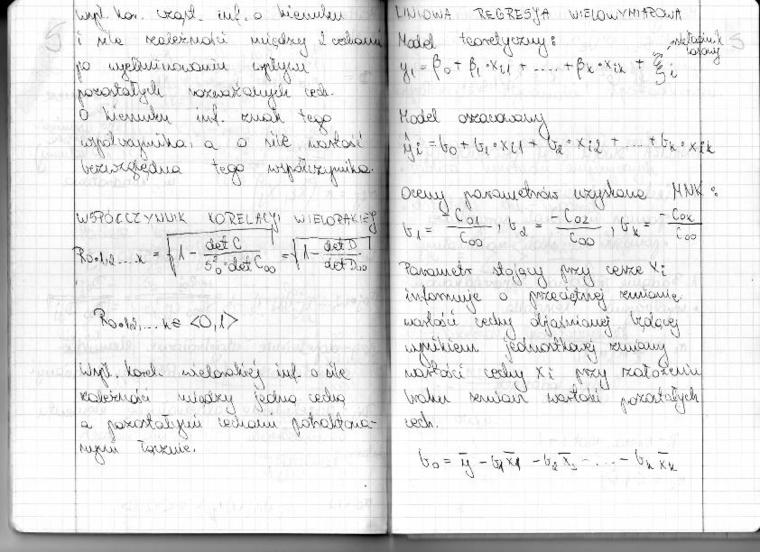 Wsp. kor. cząst. inf. o kierunku
i sile zależności między 2 cechami
po wyeliminowaniu wpływu
pozostałych rozważanych cech.
O kierunku inf. znak tego
współczynnika, a o sile wartość
bezwzględna tego współczynnika.
WSPÓŁCZYNNIK KORELACJI WIELORAKIEJ
R0·12...k = √(1 - det C / (S₀² · det C₀₀)) = √(1 - det D / det D₀₀)
R0·12,...k ∈ <0,1>
Wsp. korel. wielorakiej inf. o sile
zależności między jedną cechą
a pozostałymi cechami potraktowa-
nymi łącznie.
LINIOWA REGRESJA WIELOWYMIAROWA
Model teoretyczny:
składnik
losowy
yi = β0 + β1·xi1 + .... + βk·xik + ξi
Model oszacowany
ŷi = b0 + b1·xi1 + b2·xi2 + .... + bk·xik
Oceny parametrów uzyskane MNK:
b1 = -C01/C00, b2 = -C02/C00, bk = -C0k/C00
Parametr stojący przy cesze Xi
informuje o przeciętnej zmianie
wartości cechy objaśnianej będącej
wynikiem jednostkowej zmiany
wartości cechy Xi przy założeniu
braku zmian wartości pozostałych
cech.
b0 = ȳ - b1x̄1 - b2x̄2 - .... - bkx̄k